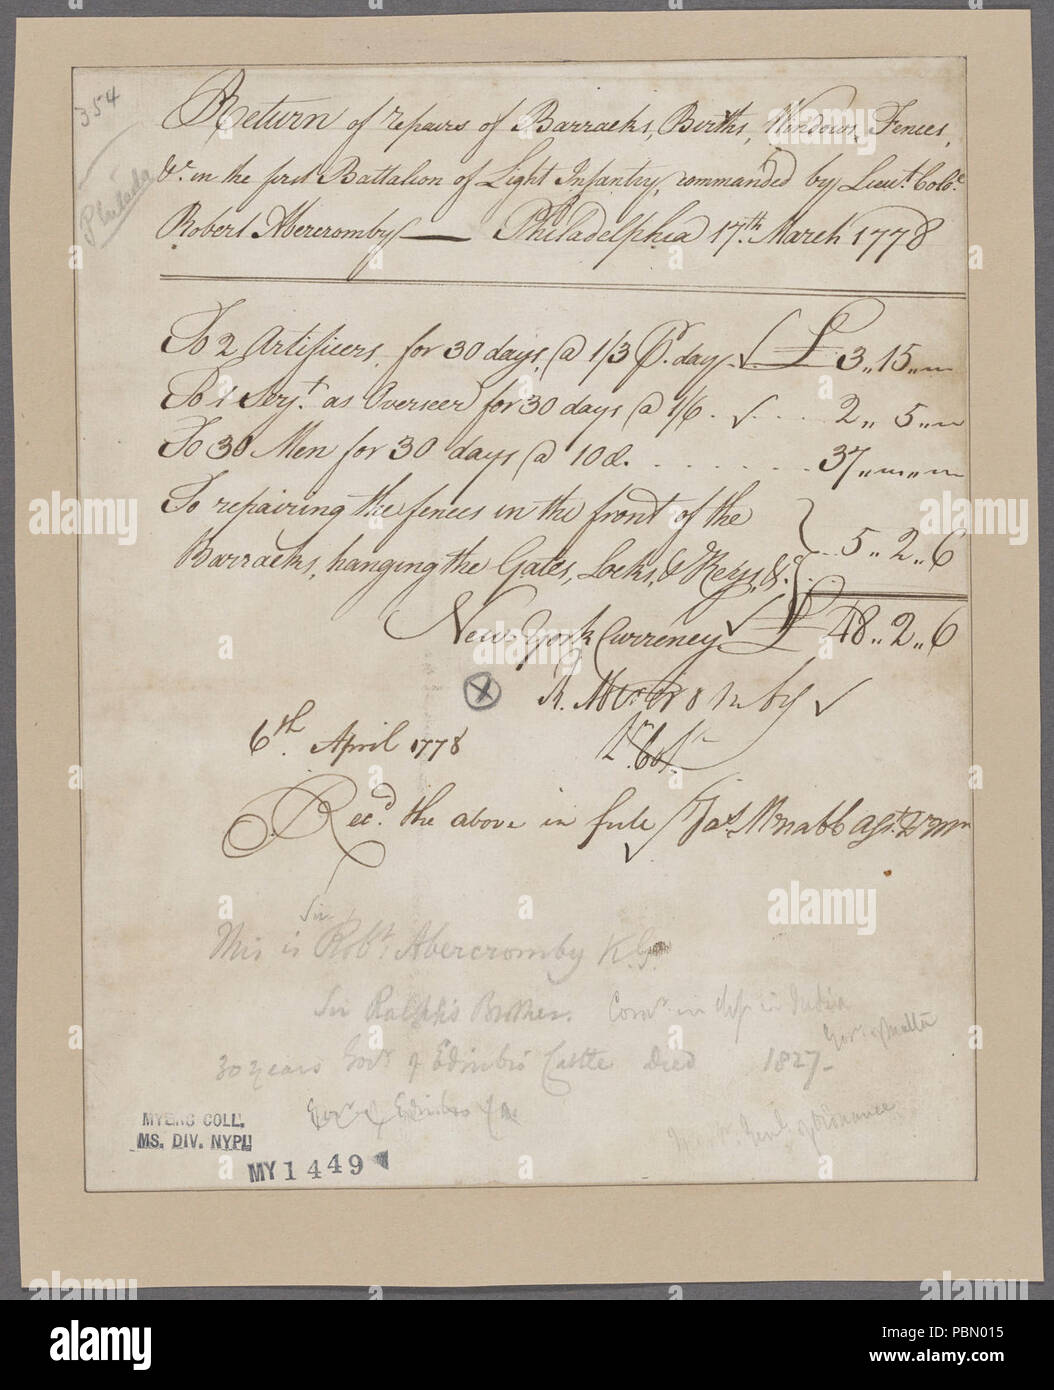 354
Philada
Return of repairs of Barracks, Births, Windows, Fences,
&c. in the first Battalion of Light Infantry, commanded by Lieut. Colo.
Robert Abercromby — Philadelphia 17th. March 1778
To 2 Artificers, for 30 days, @ 1/3 Pr. day £ 3,,15,,—
To 1 Serjt. as Overseer for 30 days @ 1/6 . . . . 2,, 5,,—
To 30 Men for 30 days @ 10d. . . . . . . . 37,,—,,—
To repairing the fences in the front of the
Barracks, hanging the Gates, Locks, & Keys, &c. . . 5,,2,,6
New York Currency £ 48,,2,,6
R. Abercromby
Lt. Col.
6th. April 1778
Recd. the above in full Jas. Mcnabb
Sir
This is Robt. Abercromby K.
Sir Ralph's Brother. in India
Govr. of Malta
30 years Govr. of Edinbro Castle Died 1827
Edinbro
MYERS COLL.
MS. DIV. NYPL
MY 1449
alamy
alamy
Image ID: PBN015
www.alamy.com